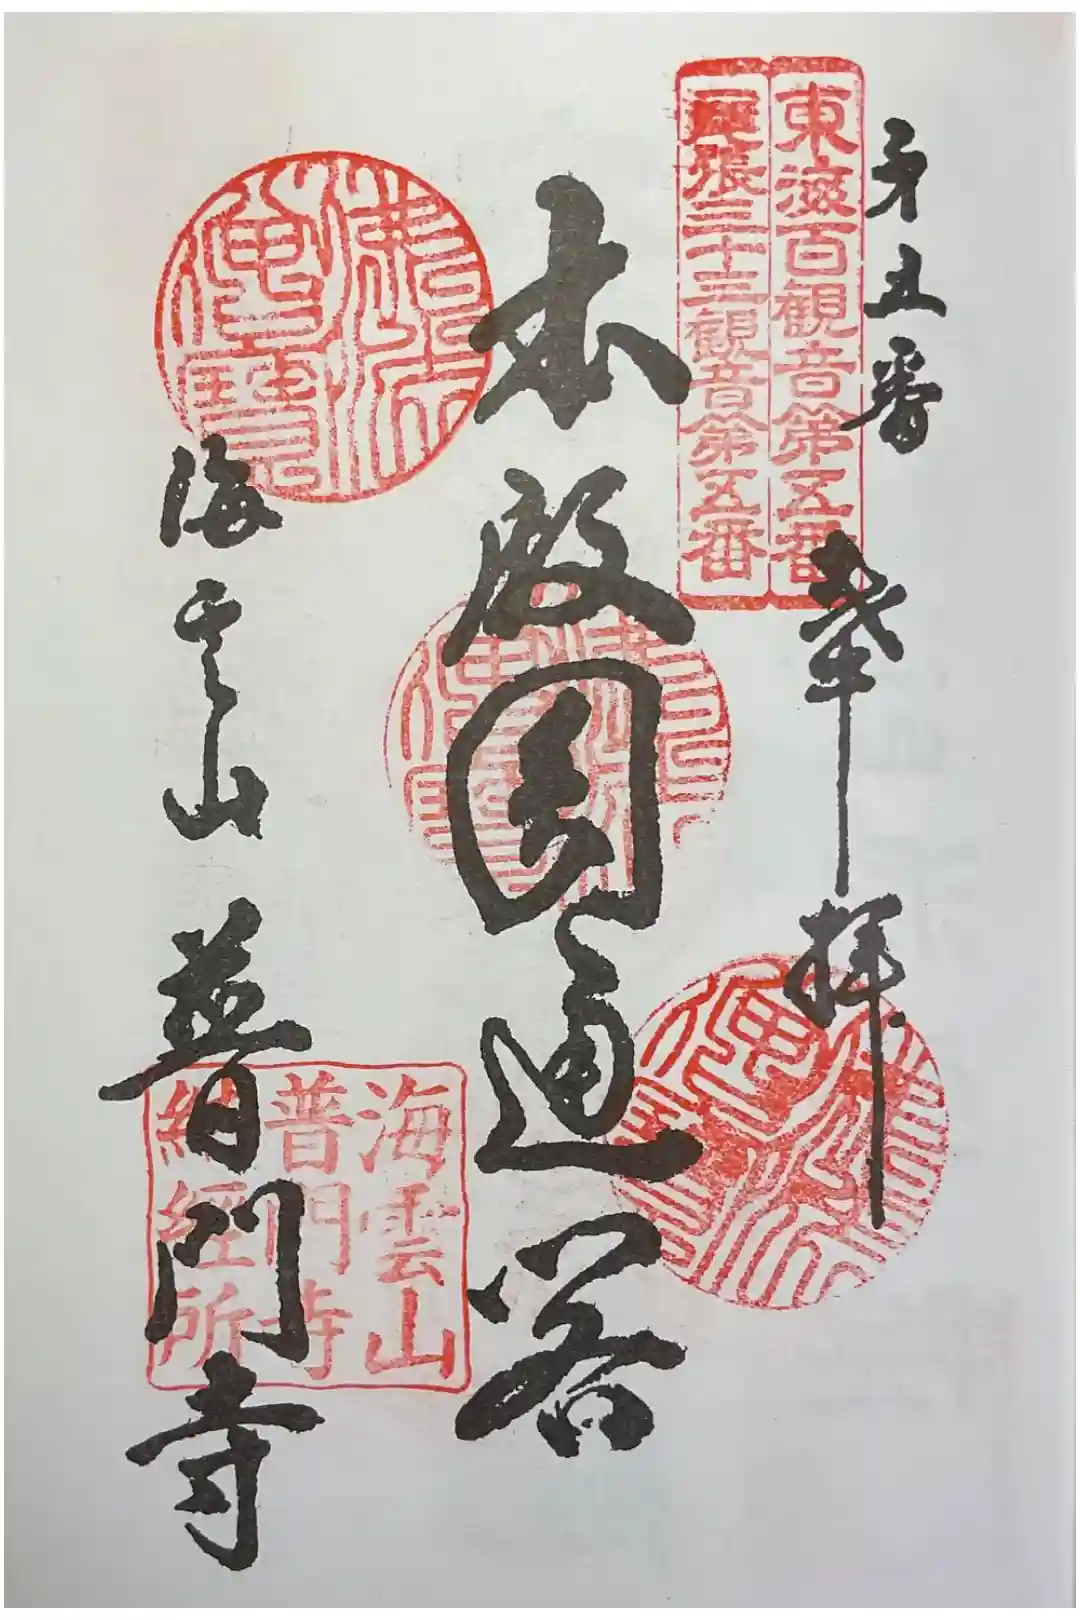 第五番
奉拝
東海百観音第五番
尾張三十三観音第五番
本殿圓通閣
海雲山
普門寺
海雲山
普門寺
納經所